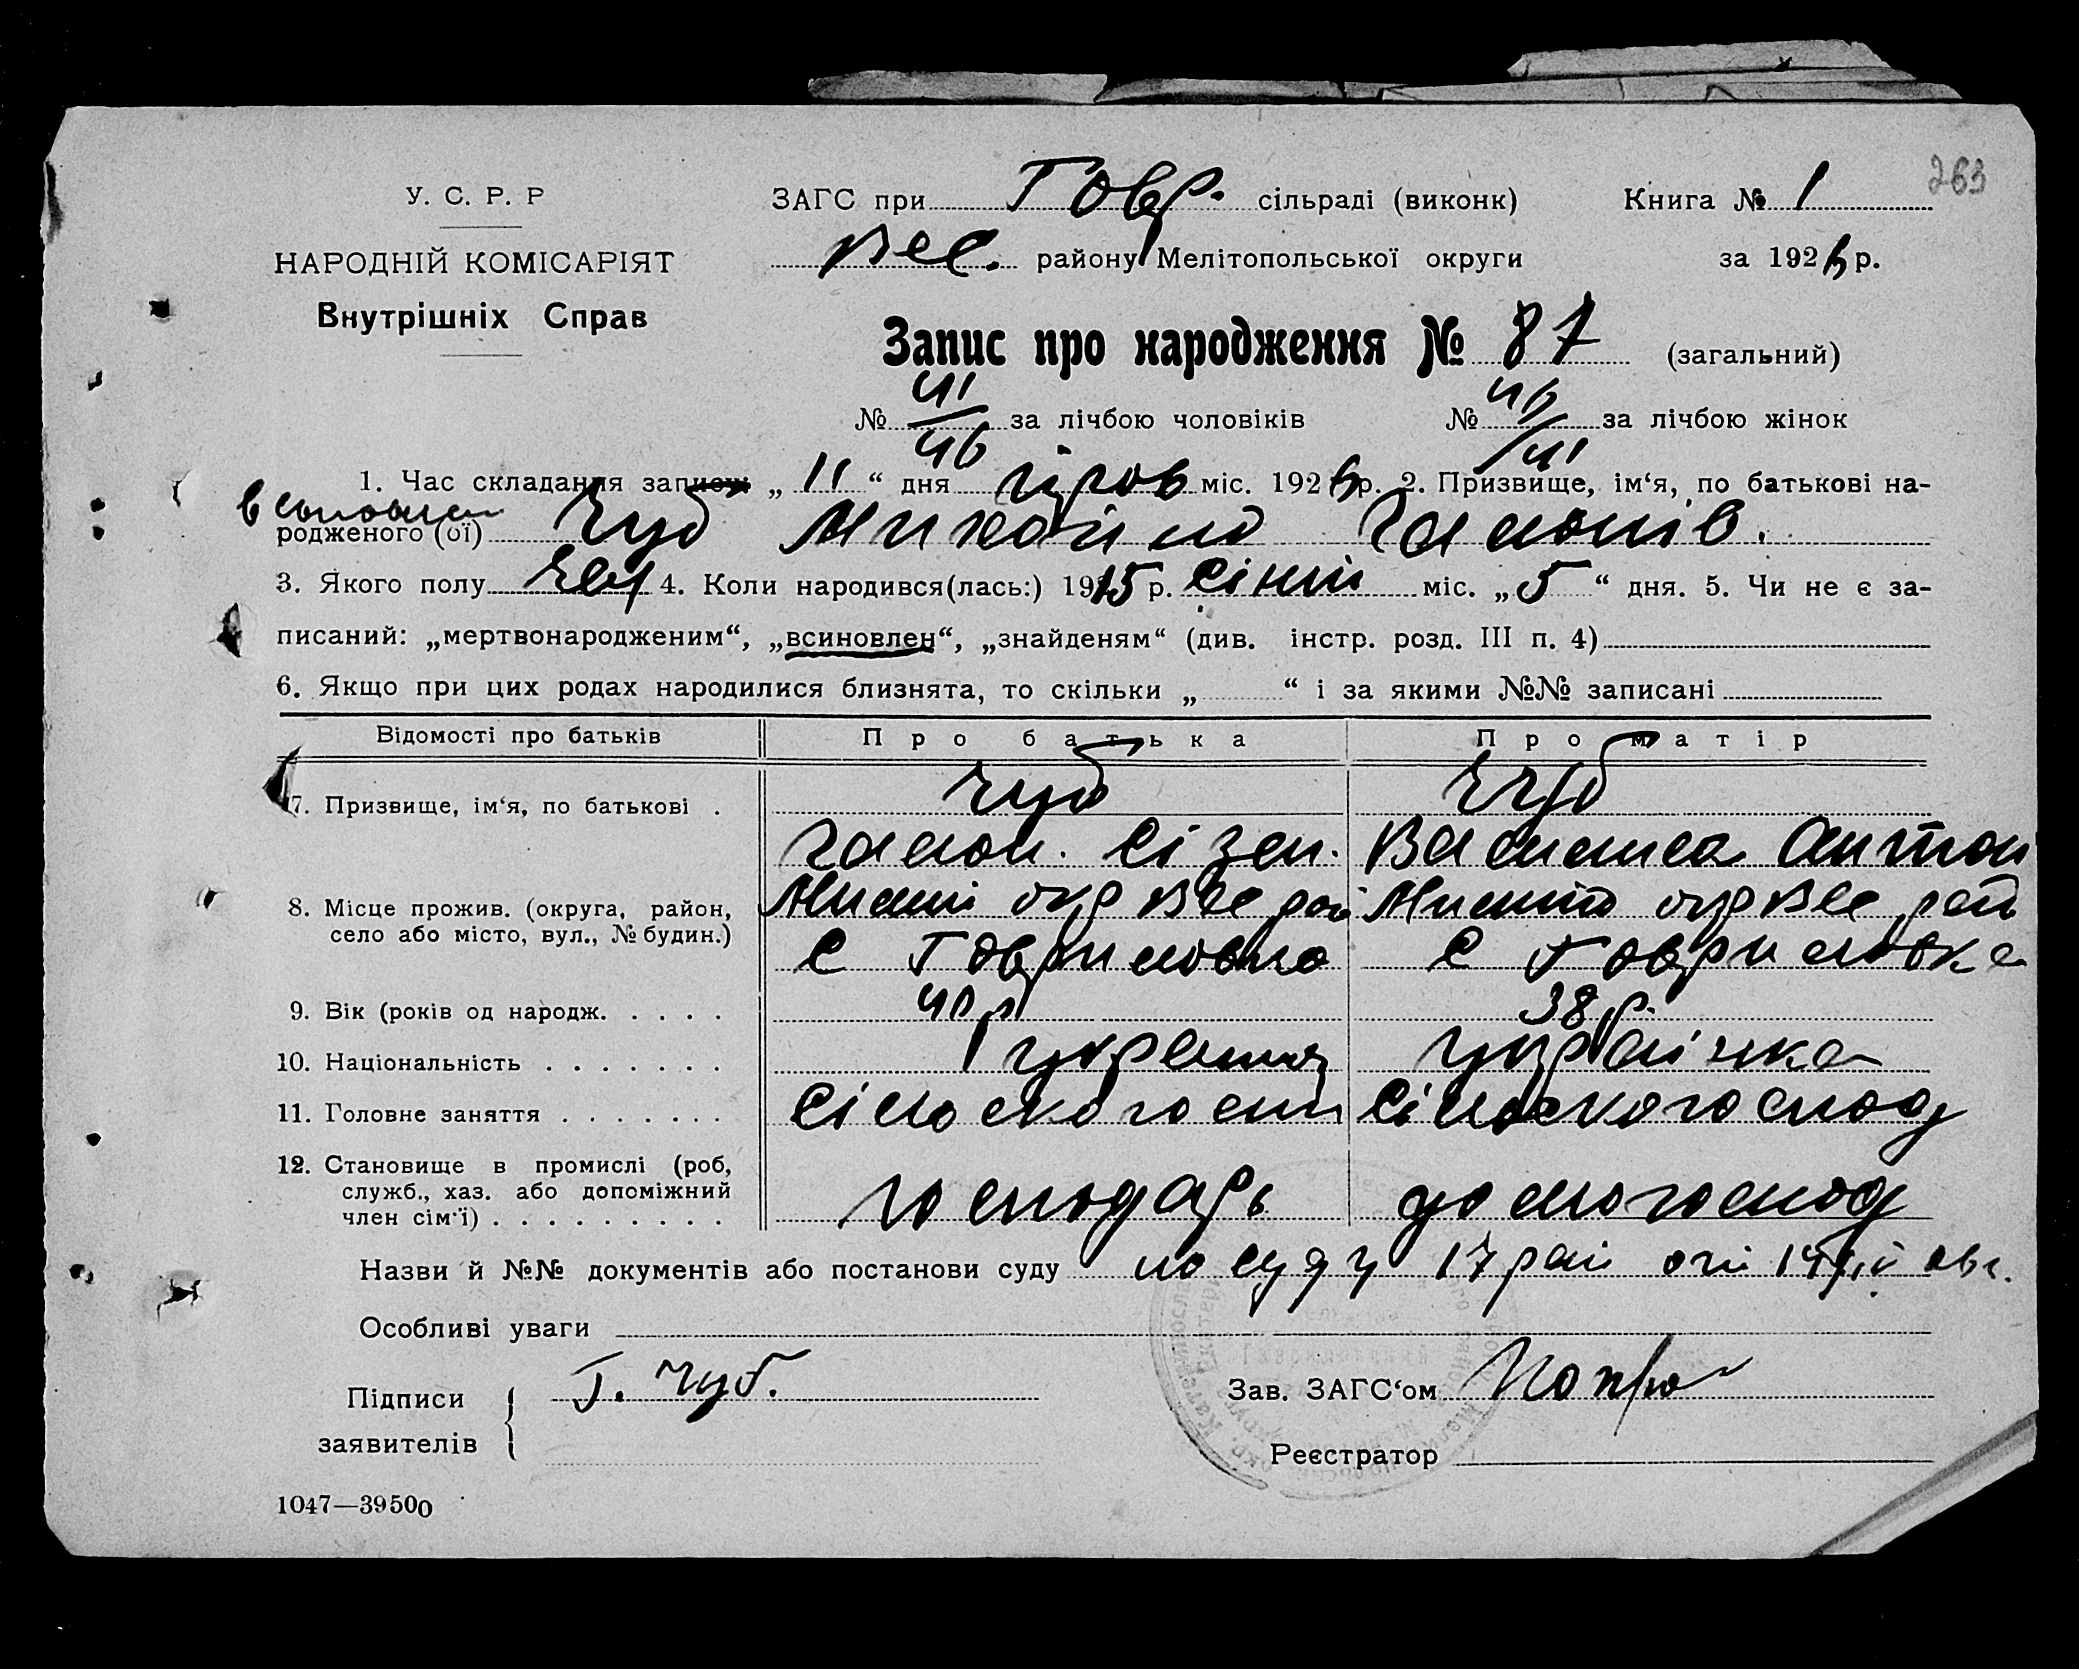 263
У. С. Р. Р
НАРОДНІЙ КОМІСАРІЯТ
Внутрішніх Справ
ЗАГС при Гавр. сільраді (виконк) Книга № 1
Вес. району Мелітопольської округи за 192 р.
Запис про народження № 87 (загальний)
№ 41/46 за лічбою чоловіків № 46/41 за лічбою жінок
1. Час складання запису „ 11 “ дня міс. 192 р. 2. Призвище, ім‘я, по батькові на-
родженого (ої) Чуб Михайло
3. Якого полу Чол 4. Коли народився(лась:) 1915 р. Січня міс. „ 5 “ дня. 5. Чи не є за-
писаний: „мертвонародженим“, „всиновлен“, „знайденям“ (див. інстр. розд. III п. 4)
6. Якщо при цих родах народилися близнята, то скільки „ “ і за якими №№ записані
Відомості про батьків Про батька Про матір
7. Призвище, ім‘я, по батькові . Чуб Чуб
Василиса Антон
8. Місце прожив. (округа, район, окр Вес рай окр Вес рай
село або місто, вул., № будин.) с Гавриловка с Гавриловка
9. Вік (років од народж. . . . . 40 р 38 р.
10. Національність . . . . . . . українец українка
11. Головне заняття . . . . . . . сільскогосп сільскогоспод
12. Становище в промислі (роб,
служб., хаз. або допоміжний
член сім‘ї) . . . . . . . . . господарь домогоспод
Назви й №№ документів або постанови суду по суду 17 рай
Особливі уваги
Підписи Г. Чуб. Зав. ЗАГС‘ом
заявителів Реєстратор
1047—39500